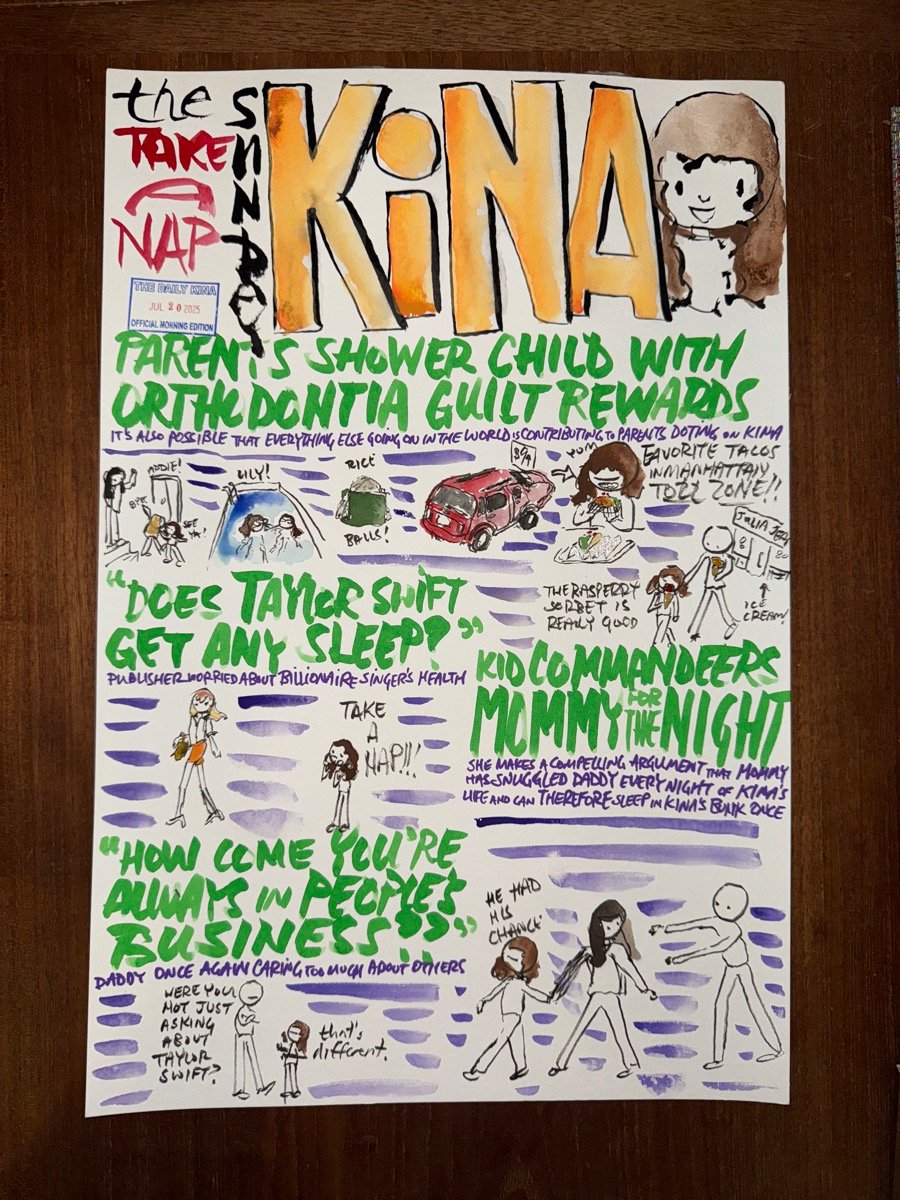 the
TAKE
A
NAP
SUNDAY
KiNA
THE DAILY KINA
JUL 20 2025
OFFICIAL MORNING EDITION
PARENTS SHOWER CHILD WITH
ORTHODONTIA GUILT REWARDS
IT'S ALSO POSSIBLE THAT EVERYTHING ELSE GOING ON IN THE WORLD IS CONTRIBUTING TO PARENTS DOTING ON KINA
ADDIE!
BYE.
SEE
YA!
LILY!
RICE
BALLS!
YUM
FAVORITE TACOS
IN MANHATTAN
TOZZ ZONE!!
THE RASPERRY
SORBET IS
REALLY GOOD
JULIA
ICE
CREAM!
"DOES TAYLOR SWIFT
GET ANY SLEEP?"
PUBLISHER WORRIED ABOUT BILLIONAIRE SINGER'S HEALTH
TAKE
A
NAP!!!
KID COMMANDEERS
MOMMY FOR THE NIGHT
SHE MAKES A COMPELLING ARGUMENT THAT MOMMY
HAS SNUGGLED DADDY EVERY NIGHT OF KINA'S
LIFE AND CAN THEREFORE SLEEP IN KINA'S BUNK ONCE
HE HAD
HIS
CHANCE
"HOW COME YOU'RE
ALWAYS IN PEOPLE'S
BUSINESS???"
DADDY ONCE AGAIN CARING TOO MUCH ABOUT OTHERS
WERE YOU
NOT JUST
ASKING
ABOUT
TAYLOR
SWIFT?
that's
different.